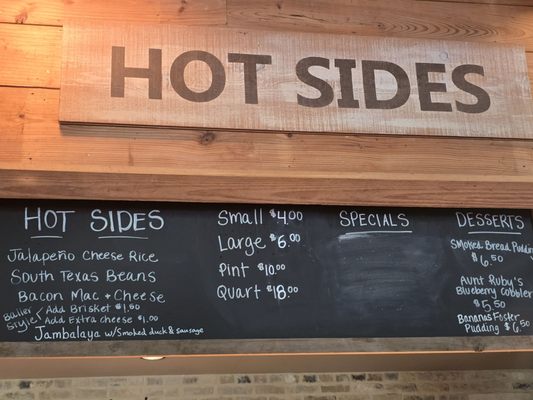 HOT SIDES
HOT SIDES
Jalapeño Cheese Rice
South Texas Beans
Bacon Mac + Cheese
Baller Style
Add Brisket $1.50
Add Extra cheese $1.00
Jambalaya w/ Smoked duck & sausage
Small $4.00
Large $6.00
Pint $10.00
Quart $18.00
SPECIALS
DESSERTS
Smoked Bread Pudding
$6.50
Aunt Ruby's
Blueberry Cobbler
$5.50
Bananas Foster
Pudding $6.50